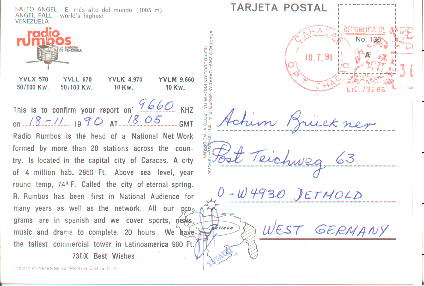 SALTO ANGEL - El más alto del mundo (1005 m)
ANGEL FALL - world's highest
VENEZUELA
TARJETA POSTAL
radio
rumbos
YVLX 570
50/100 Kw.
YVLL 670
50/100 Kw.
YVLK 4.970
10 Kw.
YVLM 9.660
10 Kw.
This is to confirm your report on 9660 KHZ
on 18-11 1990 AT 18.05 GMT
Radio Rumbos is the head of a National Net Work
formed by more than 20 stations across the coun-
try. Is located in the capital city of Caracas. A city
of 4 million hab. 2660 Ft. Above sea level, year
round temp, 74º F. Called the city of eternal spring.
R. Rumbos has been first in National Audience for
many years as well as the network. All our pro-
grams are in spanish and we cover sports, news,
music and drama to complete. 20 hours. We have
the tallest commercial tower in Latinoamerica 900 Ft.
73DX Best Wishes
CARACAS
10.7.91
No.
A
Achim Brückner
Post Teichweg 63
D-W4930 DETMOLD
WEST GERMANY